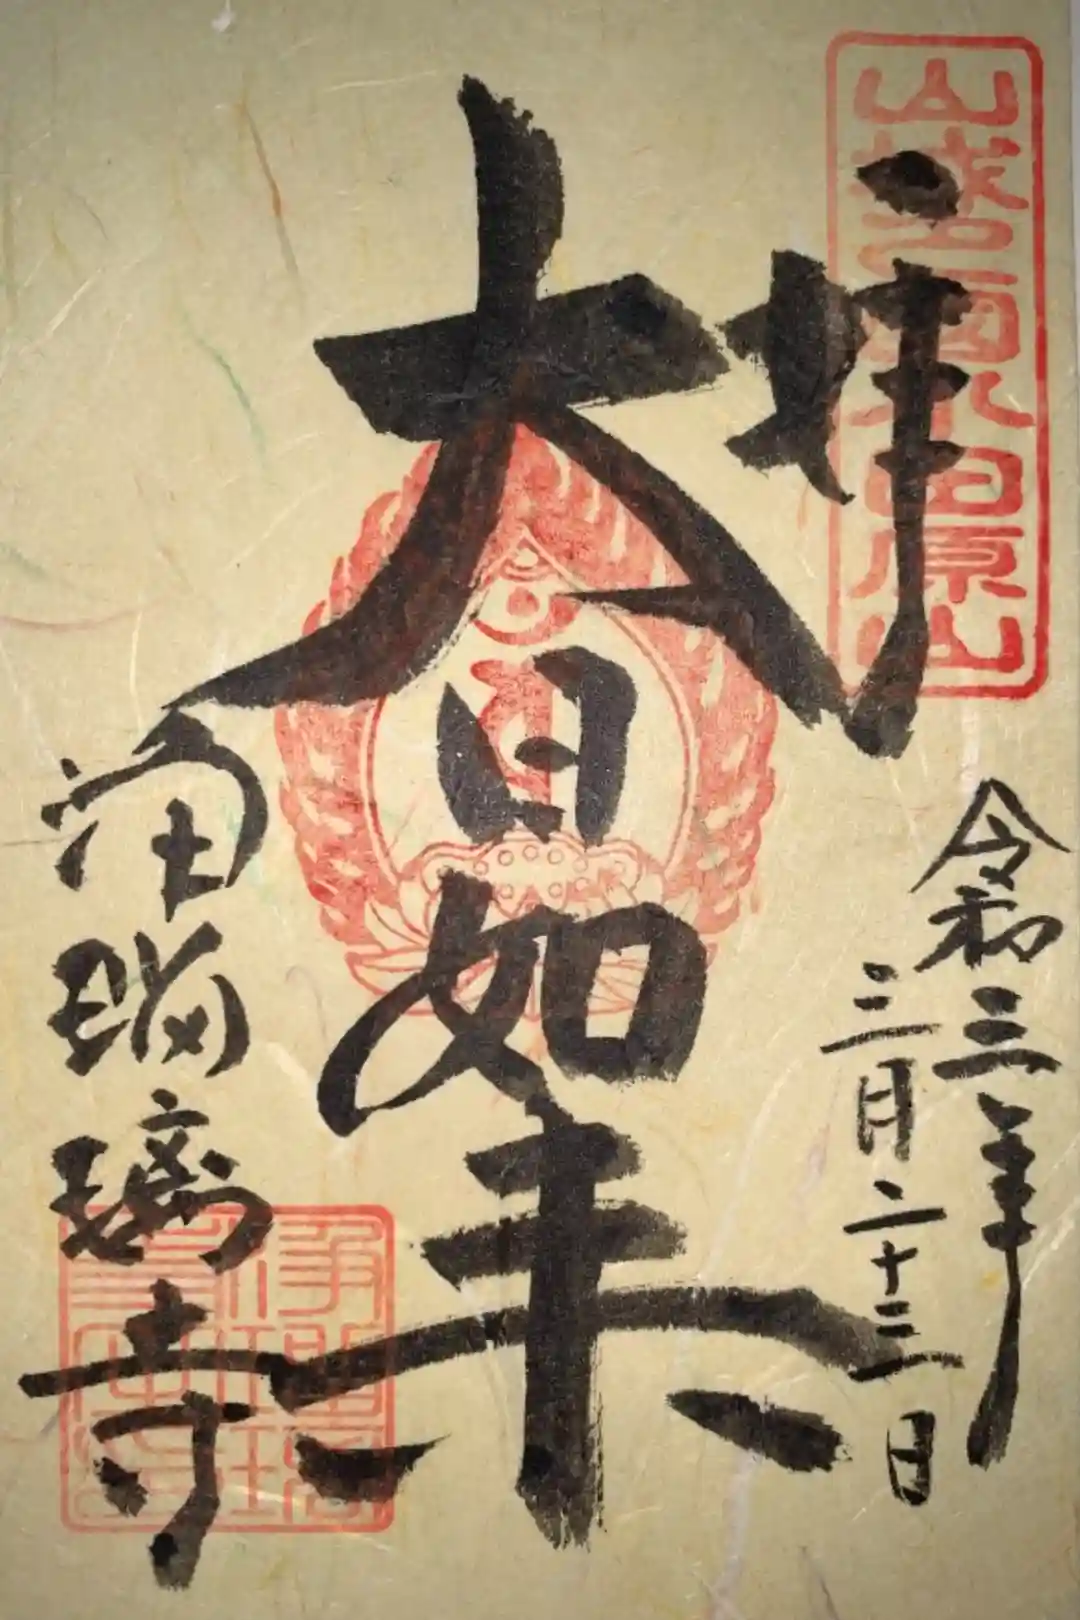 山城之國小田原山
拝
令和三年
三月二十三日
大日如来
浄瑠璃寺